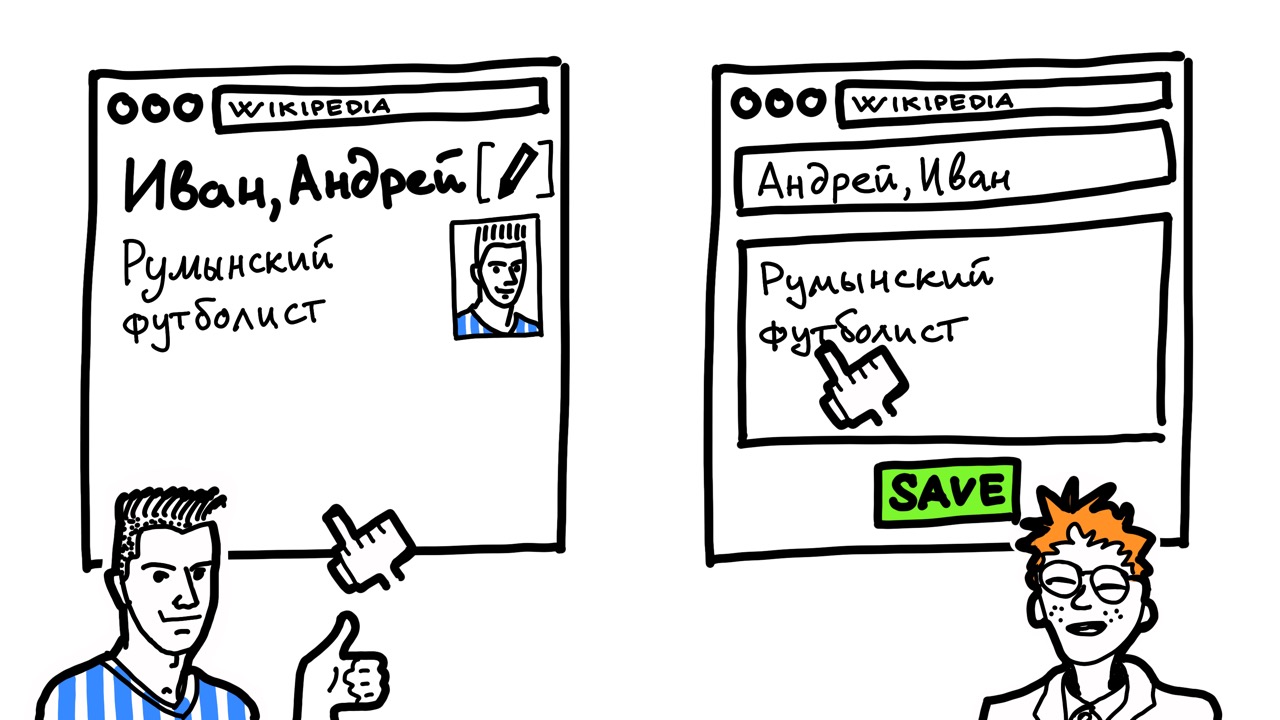 WIKIPEDIA
Иван, Андрей
Румынский
футболист
WIKIPEDIA
Андрей, Иван
Румынский
футболист
SAVE